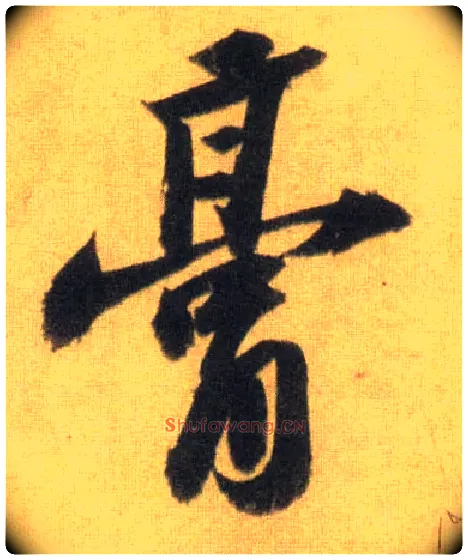 膏
Shufawang.CN